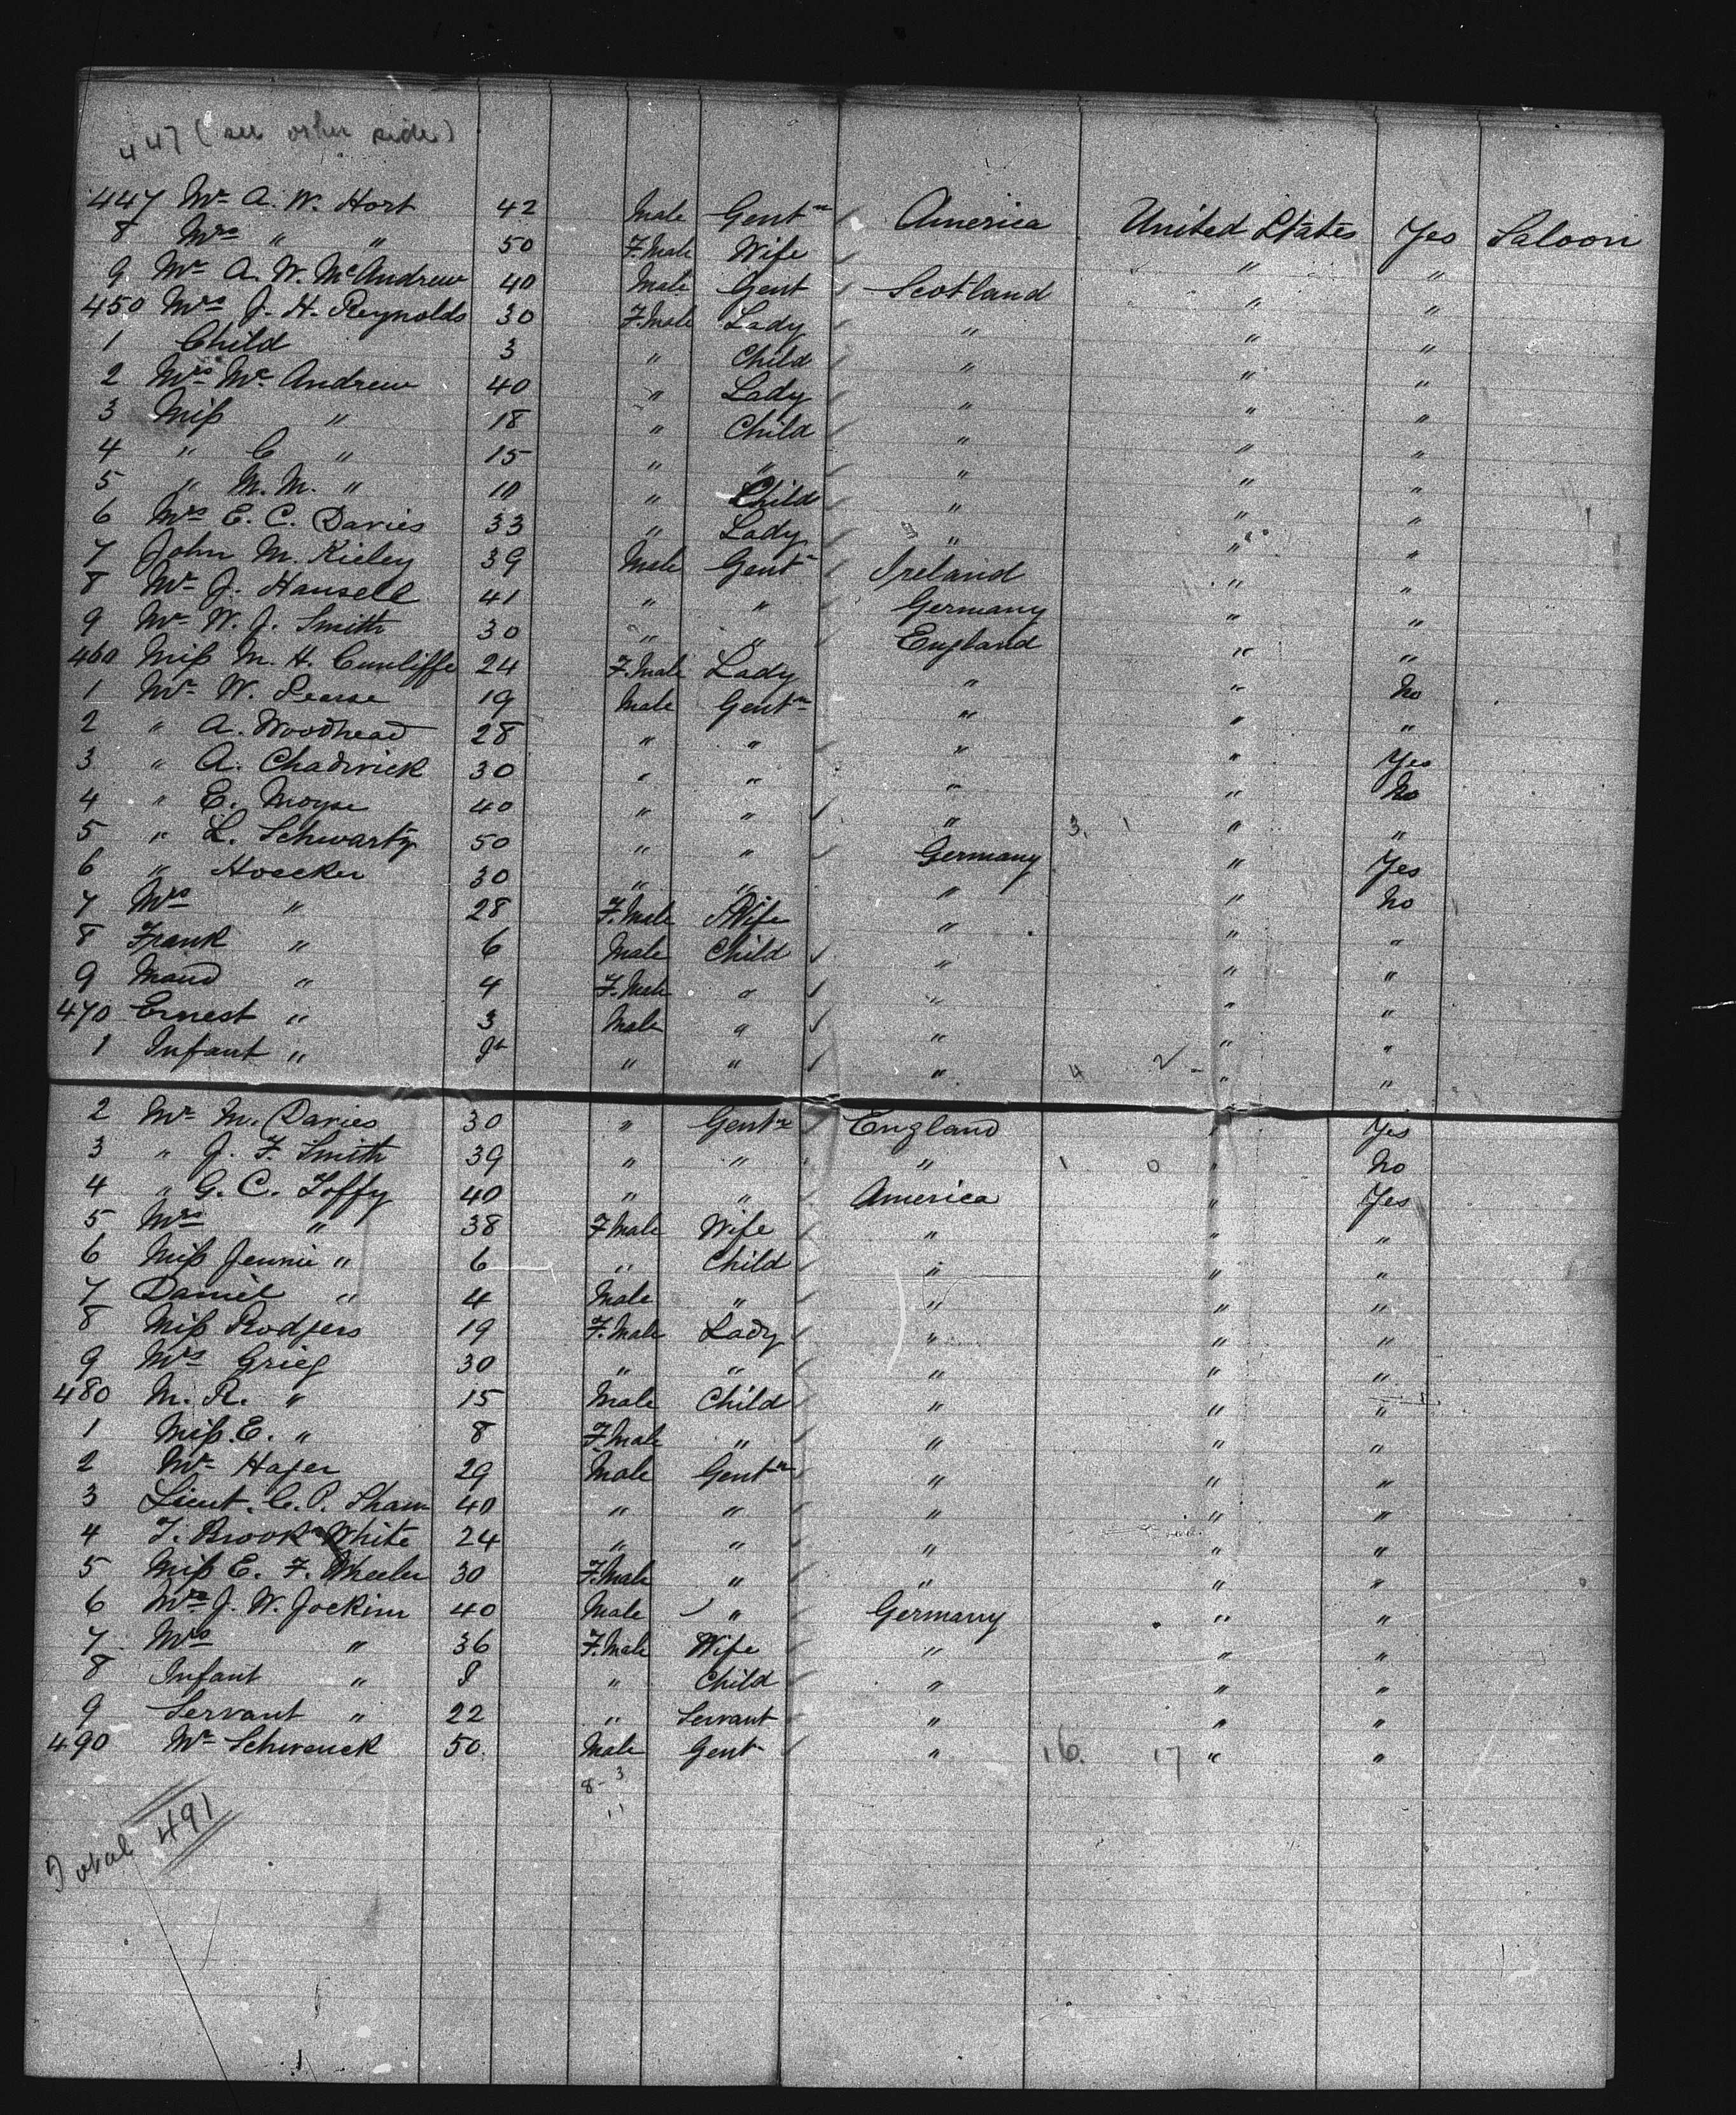 447 (see other side)
447 Mr A. W. Hort 42 Male Gentn America United States Yes Saloon
8 Mrs " " 50 F.Male Wife " "
9 Mr A. W. McAndrew 40 Male Gent Scotland " "
450 Mrs J. H. Reynolds 30 F.Male Lady " " "
1 Child 3 " Child " " "
2 Mrs McAndrew 40 " Lady " " "
3 Miss " 18 " Child " " "
4 " C " 15 " " " " "
5 " M. M. " 10 " Child " " "
6 Mrs E. C. Davies 33 " Lady " " "
7 John M. Kieley 39 Male Gentn Ireland " "
8 Mr J. Hansell 41 " " Germany " "
9 Mr W. J. Smith 30 " " England " "
460 Miss M. H. Cunliffe 24 F.Male Lady " " No
1 Mr W. Pearse 19 Male Gentn " " "
2 " A. Woodhead 28 " " " " Yes
3 " A. Chadwick 30 " " " " No
4 " E. Moyse 40 " " " 3. 1 " "
5 " L. Schwartz 50 " " Germany " Yes
6 " Hoecker 30 " " " " No
7 Mrs " 28 F.Male Wife " " "
8 Frank " 6 Male Child " " "
9 Maud " 4 F.Male " " " "
470 Ernest " 3 Male " " " "
1 Infant " " " " 4 2 " "
2 Mr M. Davies 30 " Gentn England " Yes
3 " J. F. Smith 39 " " " 1 0 " No
4 " G. C. Toffy 40 " " America " Yes
5 Mrs " 38 F.Male Wife " " "
6 Miss Jennie " 6 " Child " " "
7 Daniel " 4 Male " " " "
8 Miss Rodgers 19 F.Male Lady " " "
9 Mrs Grieg 30 " " " " "
480 M. R. " 15 Male Child " " "
1 Miss E. " 8 F.Male " " " "
2 Mr Hager 29 Male Gentn " " "
3 Lieut. C. P. Shaw 40 " " " " "
4 T. Brook White 24 " " " " "
5 Miss E. F. Wheeler 30 F.Male " " " "
6 Mr J. W. Jockim 40 Male " Germany " "
7 Mrs " 36 F.Male Wife " " "
8 Infant " " Child " " "
9 Servant " 22 " Servant " " "
490 Mr Schwenck 50. Male Gent " 16. 17 " "
8 - 3
11
Total 491